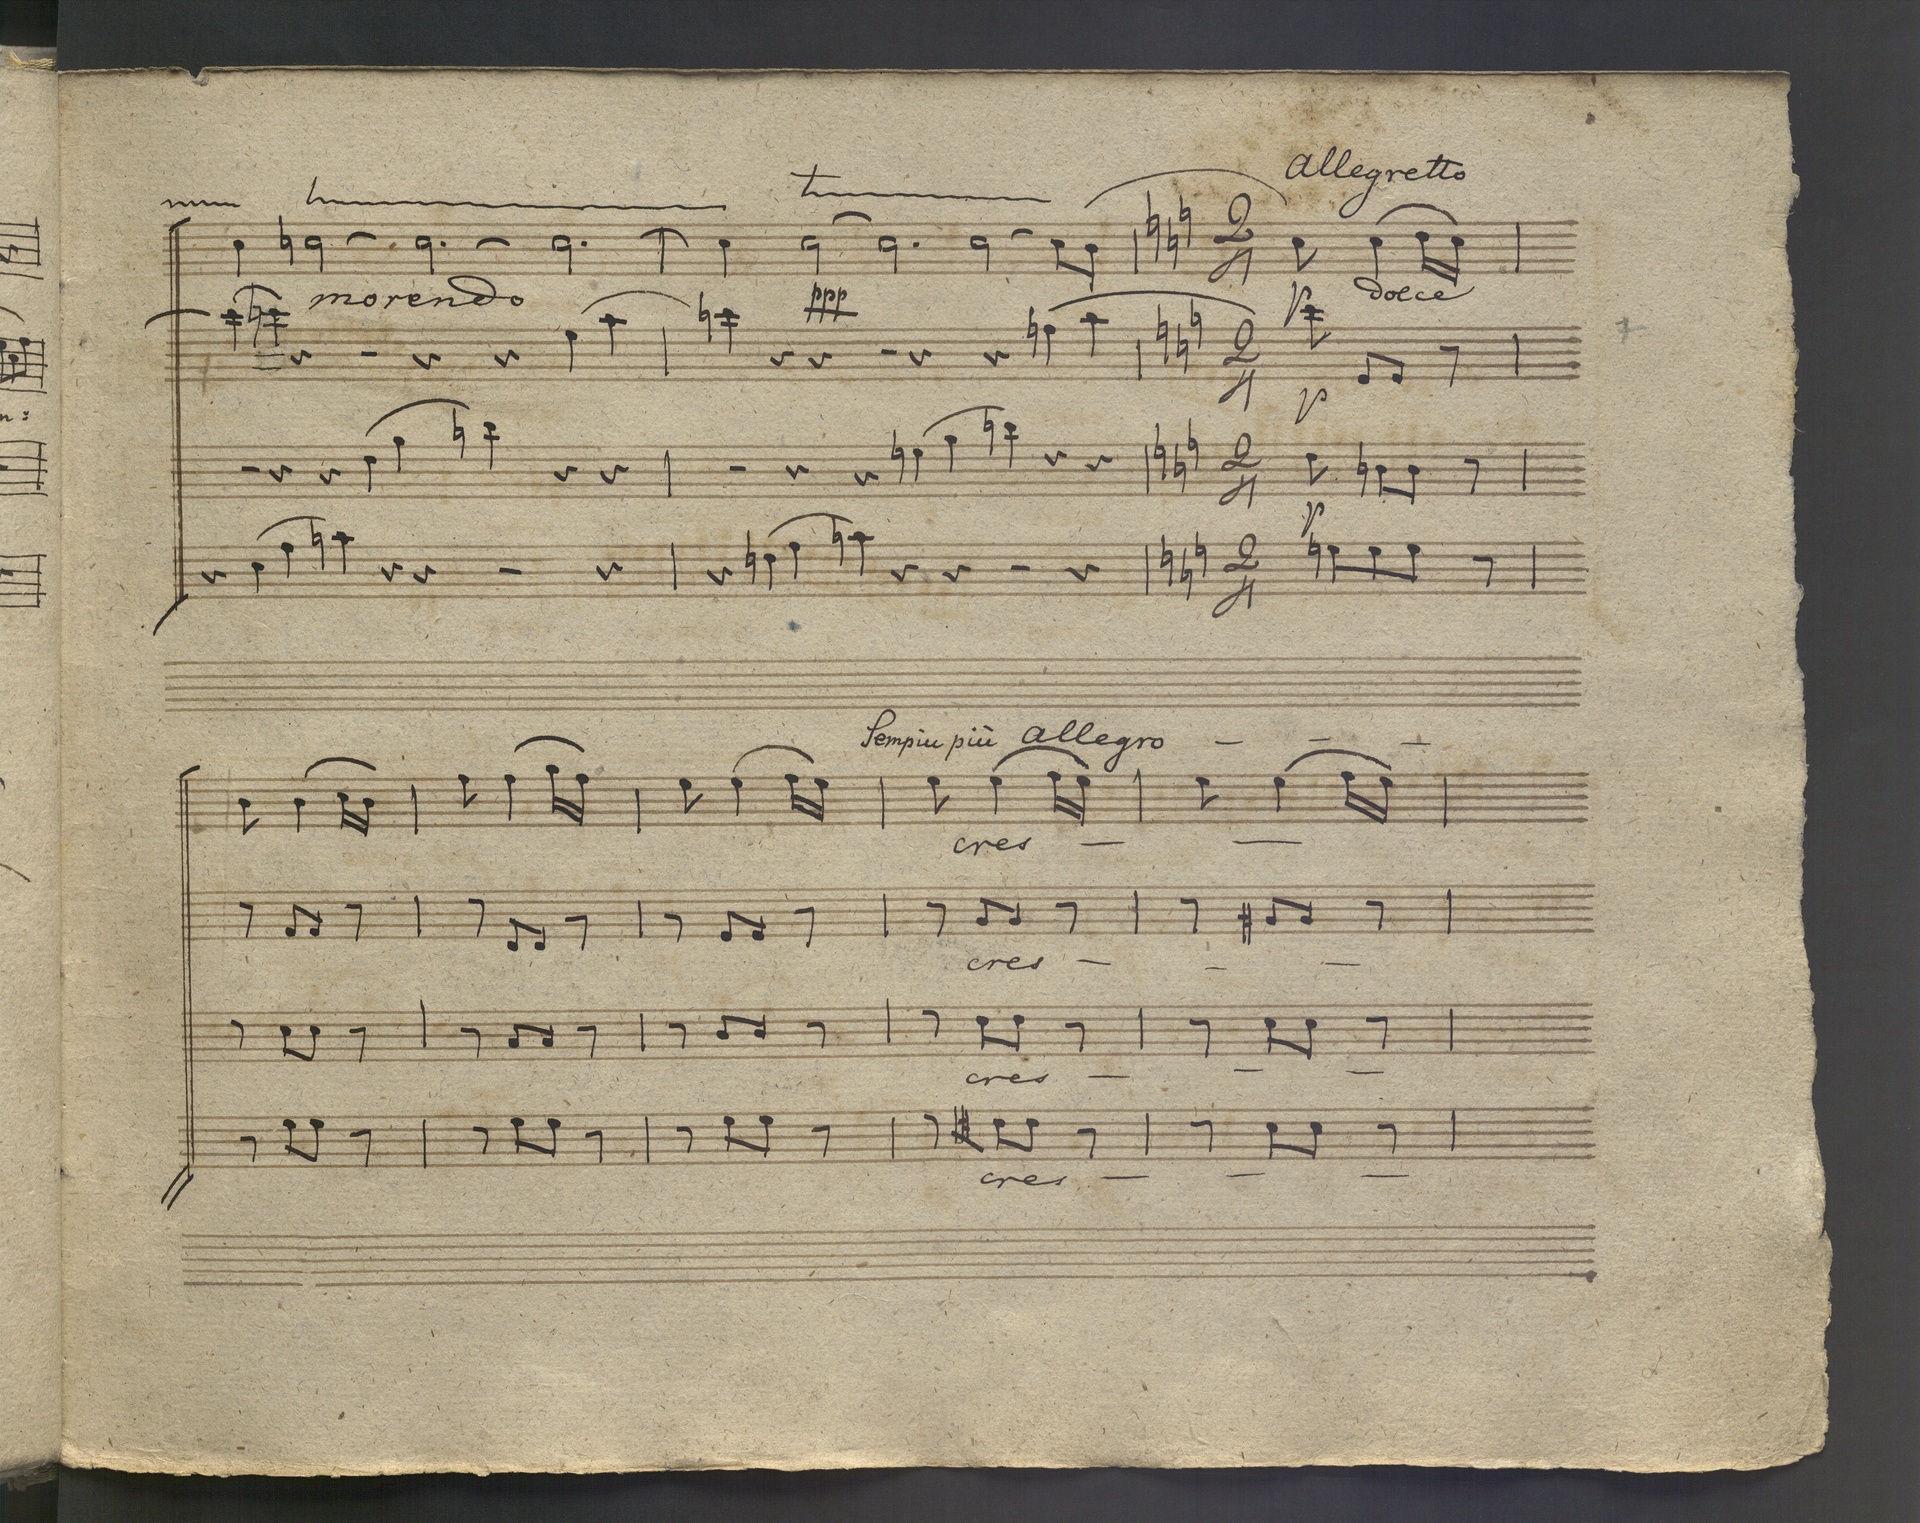 allegretto
morendo
ppp
p dolce
p
p
Sempiu più allegro – – –
cres – –
cres – – –
cres – – –
cres – – –